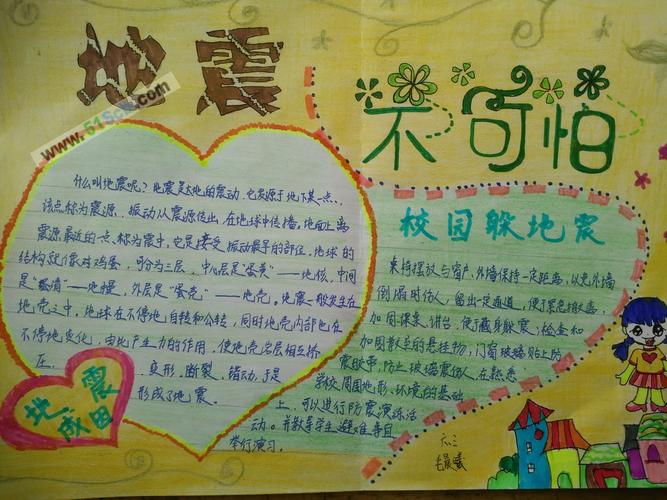 地震
不可怕
www.51Sc
什么叫地震呢?地震是大地的震动,它发源于地下某一点,
该点称为震源,振动从震源传出,在地球中传播。地面上离
震源最近的一点称为震中,它是接受振动最早的部位,地球的
结构就像鸡蛋,可分为三层,中心层是“蛋黄”——地核,中间
是“蛋清”——地幔,外层是“蛋壳”——地壳。地震一般发生在
地壳之中,地球在不停地自转和公转,同时地壳内部也在
不停地变化,由此产生力的作用,使地壳岩层相互挤
压、变形、断裂、错动,于是
形成了地震。
地震
成因
校园躲地震
桌椅摆放与窗户、外墙保持一定距离,以免外墙
倒塌时伤人,留出一定通道,便于紧急撤离,
加固课桌、讲台,便于藏身躲震;检查和
加固教室的悬挂物,门窗玻璃贴上防
震胶带,防止玻璃震伤人,在熟悉
学校周围地形、环境的基础
上,可以进行防震演练活
动。并教导学生避难
举行演习。
六三